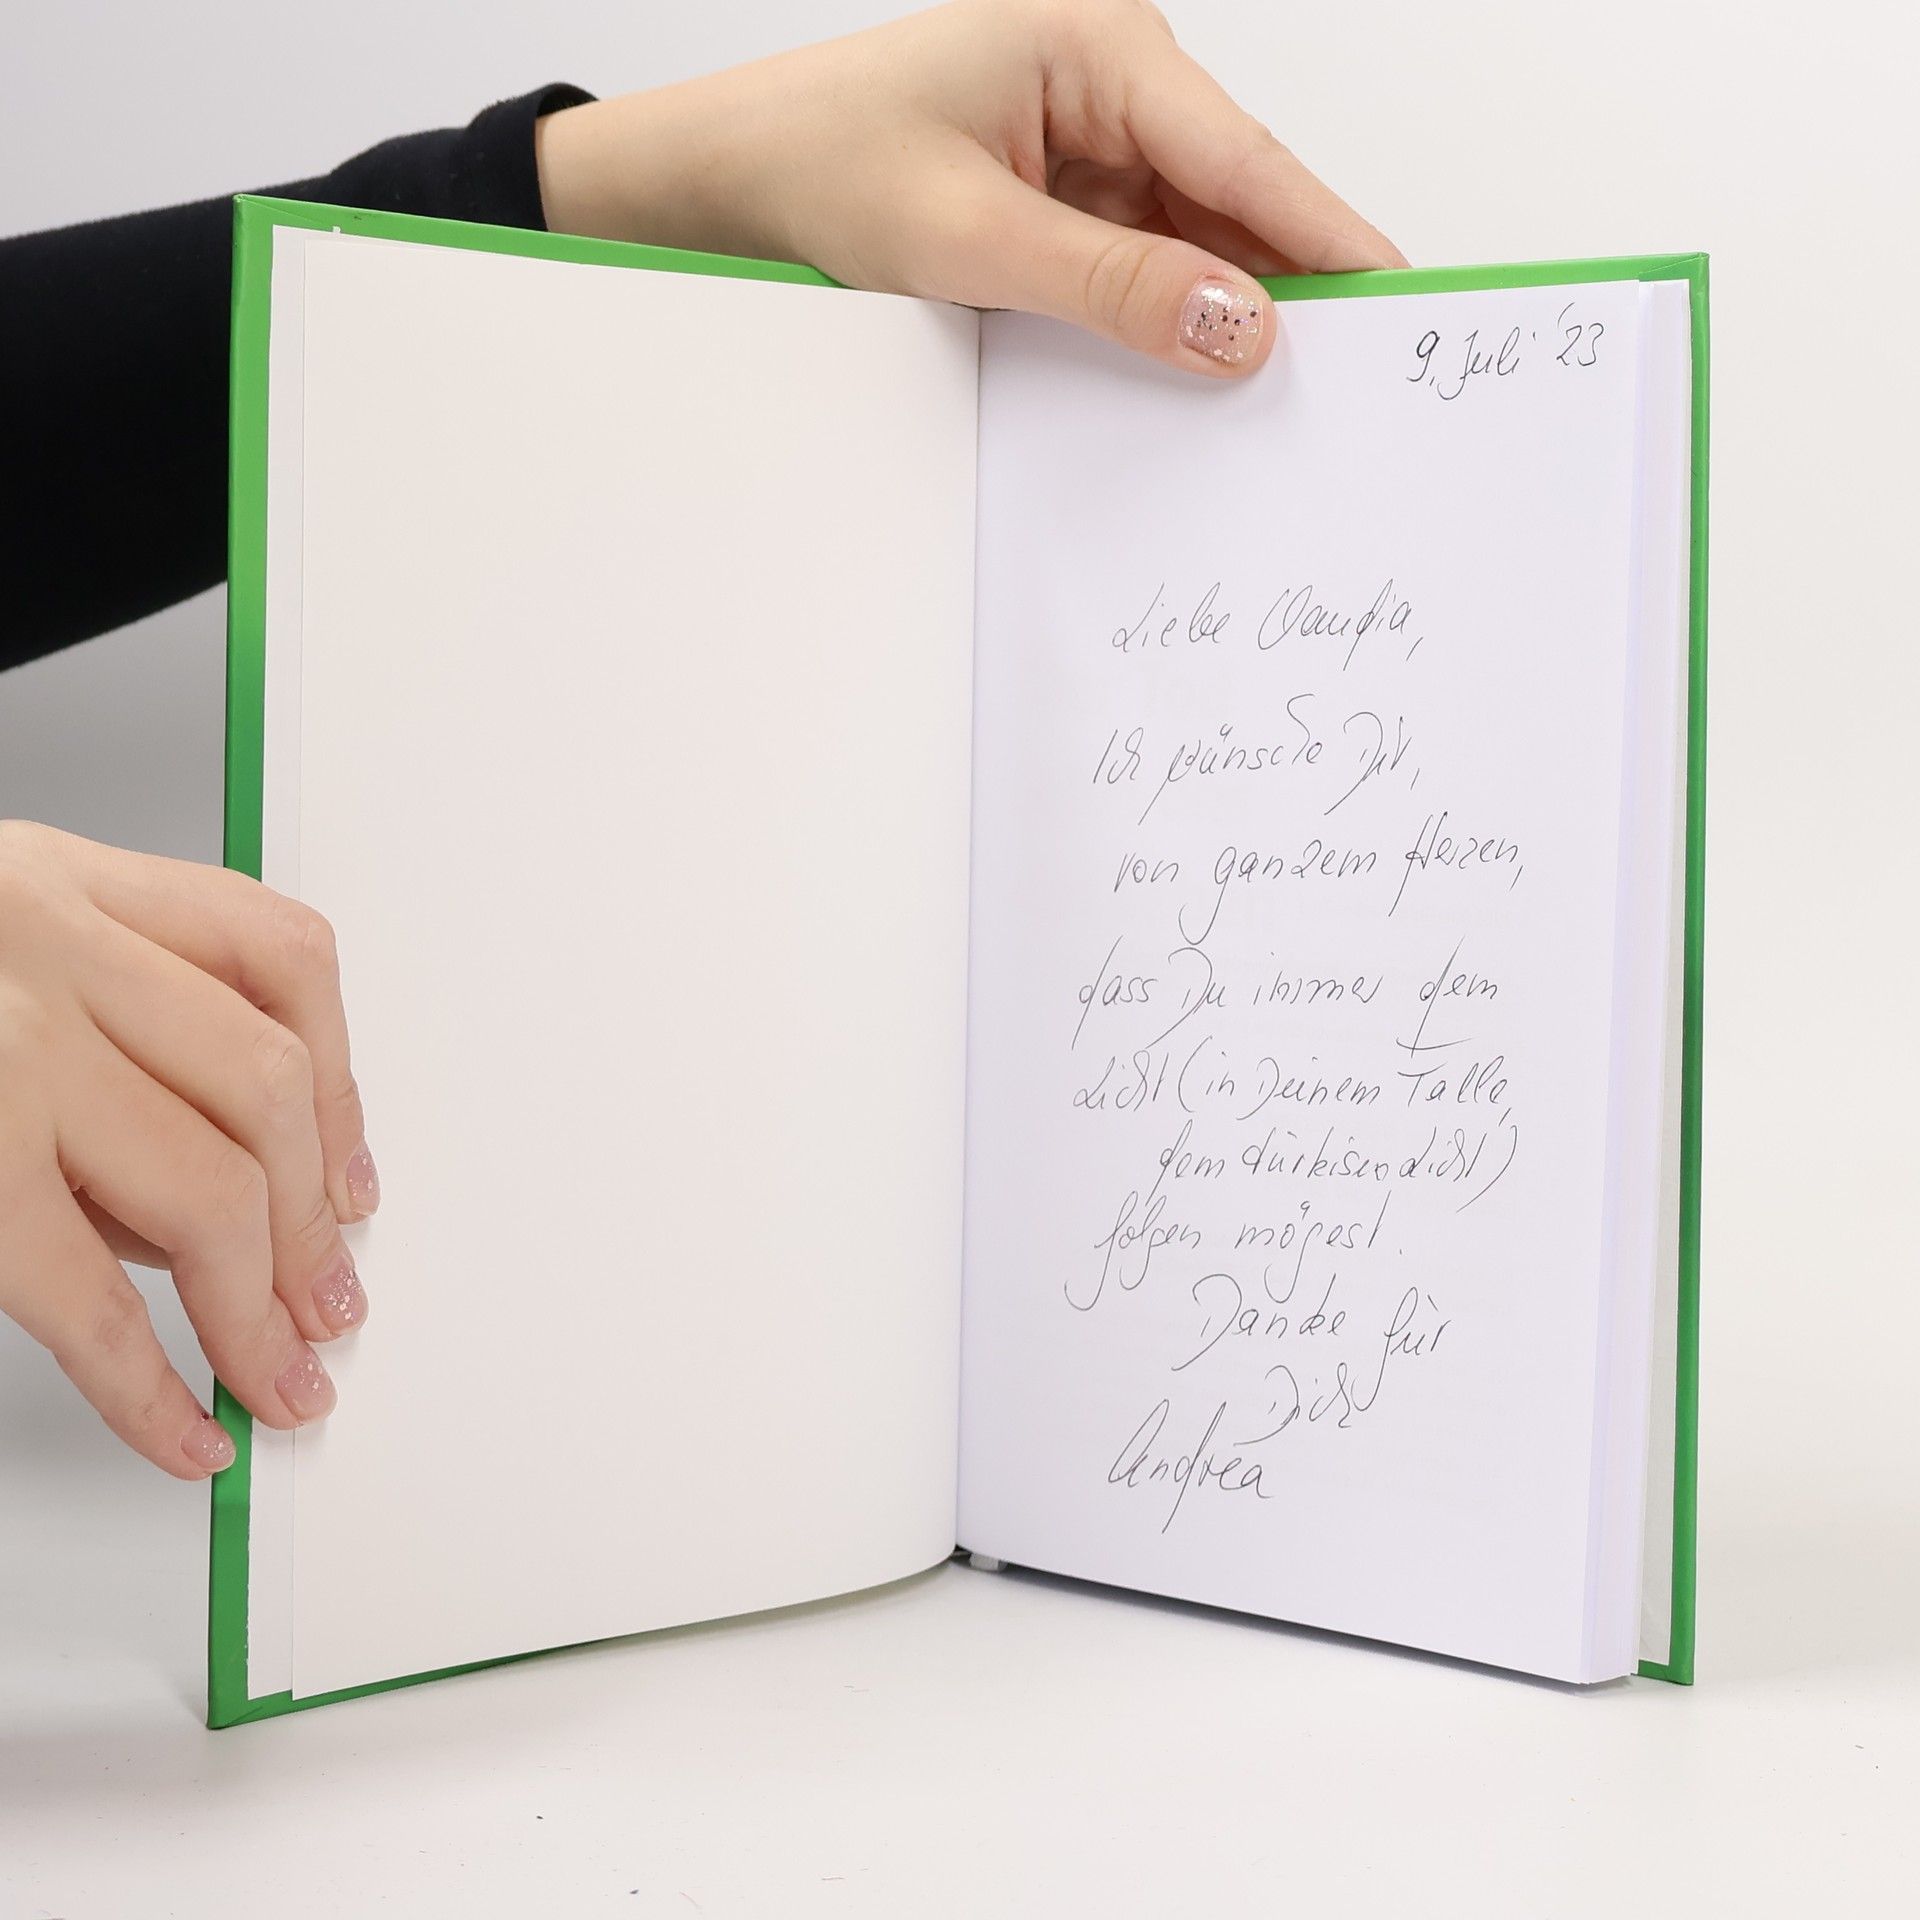 9. Juli '23
Liebe Claudia,
Ich wünsche Dir,
von ganzem Herzen,
dass Du immer dem
Licht (in Deinem Falle,
dem türkisen Licht)
folgen mögest.
Danke für
Dich
Andrea